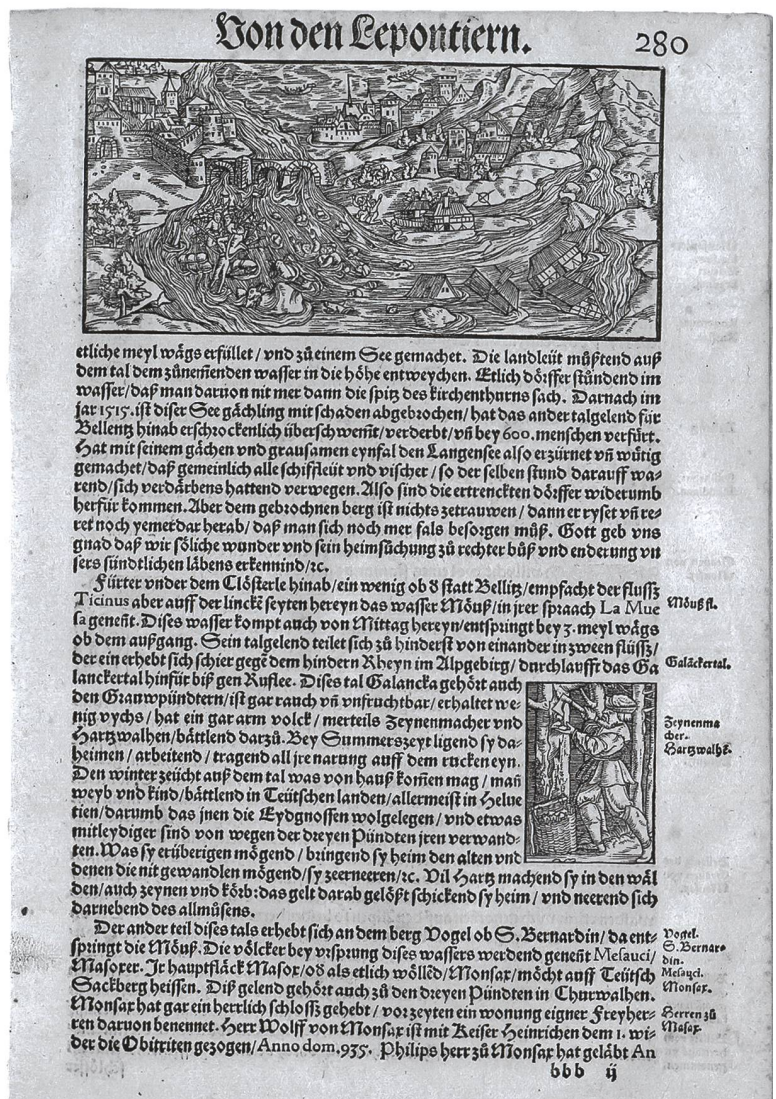 Von den Lepontiern. 280
etliche meyl wägs erfüllet / vnd zů einem See gemachet. Die landleüt můßtend auß
dem tal dem zůnem̃enden wasser in die höhe entweychen. Etlich dörffer stůndend im
wasser / daß man daruon nit mer dann die spitz des kirchenthurns sach. Darnach im
jar 1515. ist diser See gächling mit schaden abgebrochen / hat das ander talgelend für
Bellentz hinab erschrockenlich überschwem̃t / verderbt / vñ bey 600. menschen verfürt.
Hat mit seinem gächen vnd grausamen eynfal den Langensee also erzürnet vñ wütig
gemachet / daß gemeinlich alle schiffleüt vnd vischer / so der selben stund darauff wa-
rend / sich verdärbens hattend verwegen. Also sind die ertrenckten dörffer widerumb
herfür kommen. Aber dem gebrochnen berg ist nichts zetrauwen / dann er ryset vñ re-
ret noch yemerdar herab / daß man sich noch mer fals besorgen můß. Gott geb vns
gnad daß wir söliche wunder vnd sein heimsůchung zů rechter bůß vnd enderung vn
sers sündtlichen läbens erkennind / ꝛc.
Fürter vnder dem Clösterle hinab / ein wenig ob d̕ statt Bellitz / empfacht der flussz
Ticinus aber auff der linckē seyten hereyn das wasser Möuß / in jrer spraach La Mue
sa geneñt. Dises wasser kompt auch von Mittag hereyn / entspringt bey 3. meyl wägs
ob dem außgang. Sein talgelend teilet sich zů hinderst von einander in zween flüssz /
der ein erhebt sich schier gegē dem hindern Rheyn im Alpgebirg / durchlaufft das Ga
lanckertal hinfür biß gen Ruflee. Dises tal Galancka gehört auch
den Grauwpündtern / ist gar rauch vñ vnfruchtbar / erhaltet we-
nig vychs / hat ein gar arm volck / merteils Zeynenmacher vnd
Hartzwalhen / bättlend darzů. Bey Summerszeyt ligend sy da-
heimen / arbeitend / tragend all jre narung auff dem rucken eyn.
Den winter zeücht auß dem tal was von hauß kom̃en mag / mañ
weyb vnd kind / bättlend in Teütschen landen / allermeist in Helue
tien / darumb das jnen die Eydgnossen wolgelegen / vnd etwas
mitleydiger sind von wegen der dreyen Pündten jren verwand-
ten. Was sy erüberigen mögend / bringend sy heim den alten vnd
denen die nit gewandlen mögend / sy zeerneeren / ꝛc. Vil Hartz machend sy in den wäl
den / auch zeynen vnd körb: das gelt darab gelößt schickend sy heim / vnd neerend sich
darnebend des allmůsens.
Der ander teil dises tals erhebt sich an dem berg Vogel ob S. Bernardin / da ent-
springt die Möuß. Die völcker bey vrsprung dises wassers werdend geneñt Mesauci /
Masoxer. Jr hauptfläck Masox / od̕ als etlich wöllēd / Monsax / möcht auff Teütsch
Sackberg heissen. Diß gelend gehört auch zů den dreyen Pündten in Churwalhen.
Monsax hat gar ein herrlich schlossz gehebt / vor zeyten ein wonung eigner Freyher-
ren daruon benennet. Herr Wolff von Monsax ist mit Keiser Heinrichen dem 1. wi-
der die Obitriten gezogen / Anno dom. 935. Philips herr zů Monsax hat geläbt An
bbb ij
Möuß fl.
Galäckertal.
Zeynenma
cher.
Hartzwalhē.
Vogel.
S. Bernar-
din.
Mesauci.
Monsax.
Herren zů
Masax.